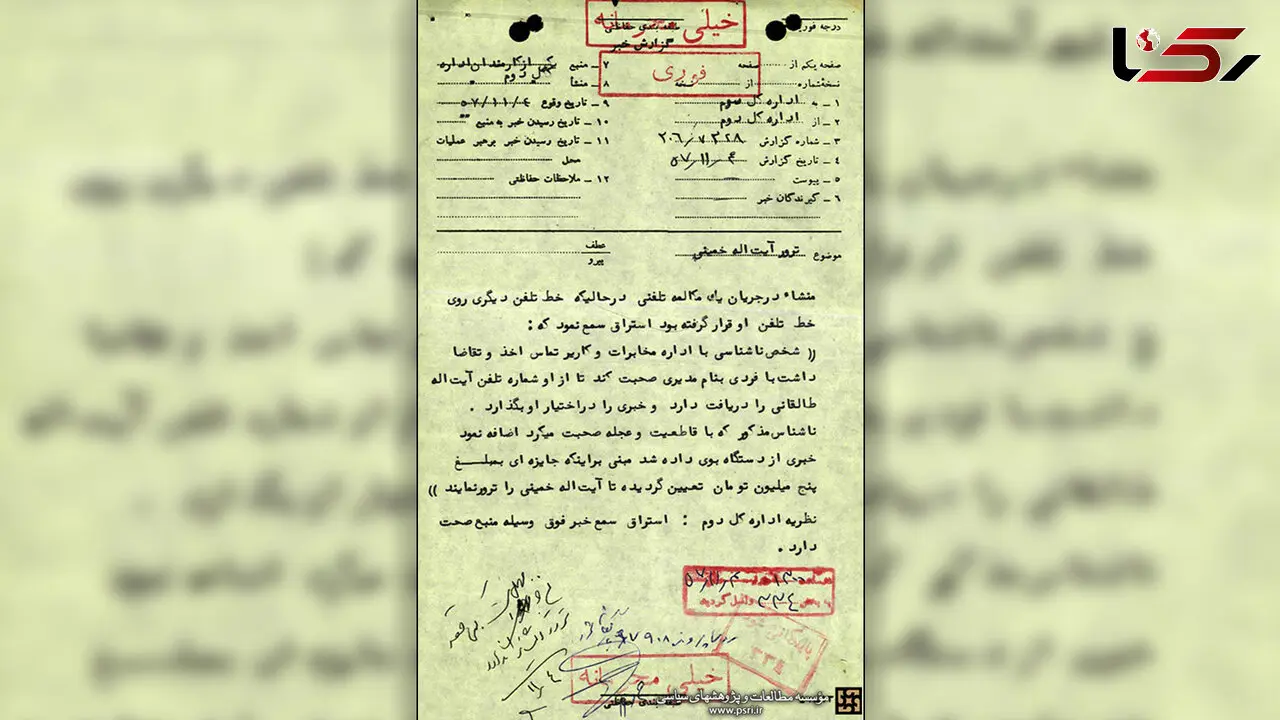 رکنا
خیلی محرمانه
طبقه‌بندی حفاظتی
گزارش خبر
درجه فوریت
فوری
صفحه یکم از صفحه
نسخه شماره از نسخه
۱ ـ به اداره کل سوم
۲ ـ از اداره کل دوم
۳ ـ شماره گزارش ۲۰۶/۷۳۲۸
۴ ـ تاریخ گزارش ۵۷/۱۱/۴
۵ ـ پیوست
۶ ـ گیرندگان خبر
۷ ـ منبع یکی از کارمندان اداره کل دوم
۸ ـ منشأ
۹ ـ تاریخ وقوع ۵۷/۱۱/۴
۱۰ ـ تاریخ رسیدن خبر به منبع "
۱۱ ـ تاریخ رسیدن خبر برهبر عملیات
محل
۱۲ ـ ملاحظات حفاظتی
موضوع ترور آیت اله خمینی
عطف
پیرو
منشاء درجریان یك مکالمه تلفنی درحالیکه خط تلفن دیگری روی
خط تلفن او قرار گرفته بود استراق سمع نمود که :
(( شخص ناشناسی با اداره مخابرات و کاریر تماس اخذ و تقاضا
داشت با فردی بنام مدیری صحبت کند تا از او شماره تلفن آیت اله
طالقانی را دریافت دارد و خبری را دراختیار او بگذارد .
ناشناس مذکور که با قاطعیت و عجله صحبت میکرد اضافه نمود
خبری از دستگاه بوی داده شد مبنی براینکه جایزه ای بمبلـــغ
پنج میلیون تومان تعیین گردیده تا آیت اله خمینی را ترور نمایند ))
نظریه اداره کل دوم : استراق سمع خبر فوق وسیله منبع صحت
دارد .
خیلی محرمانه
طبقه‌بندی حفاظتی
مؤسسه مطالعات و پژوهشهای سیاسی
www.psri.ir